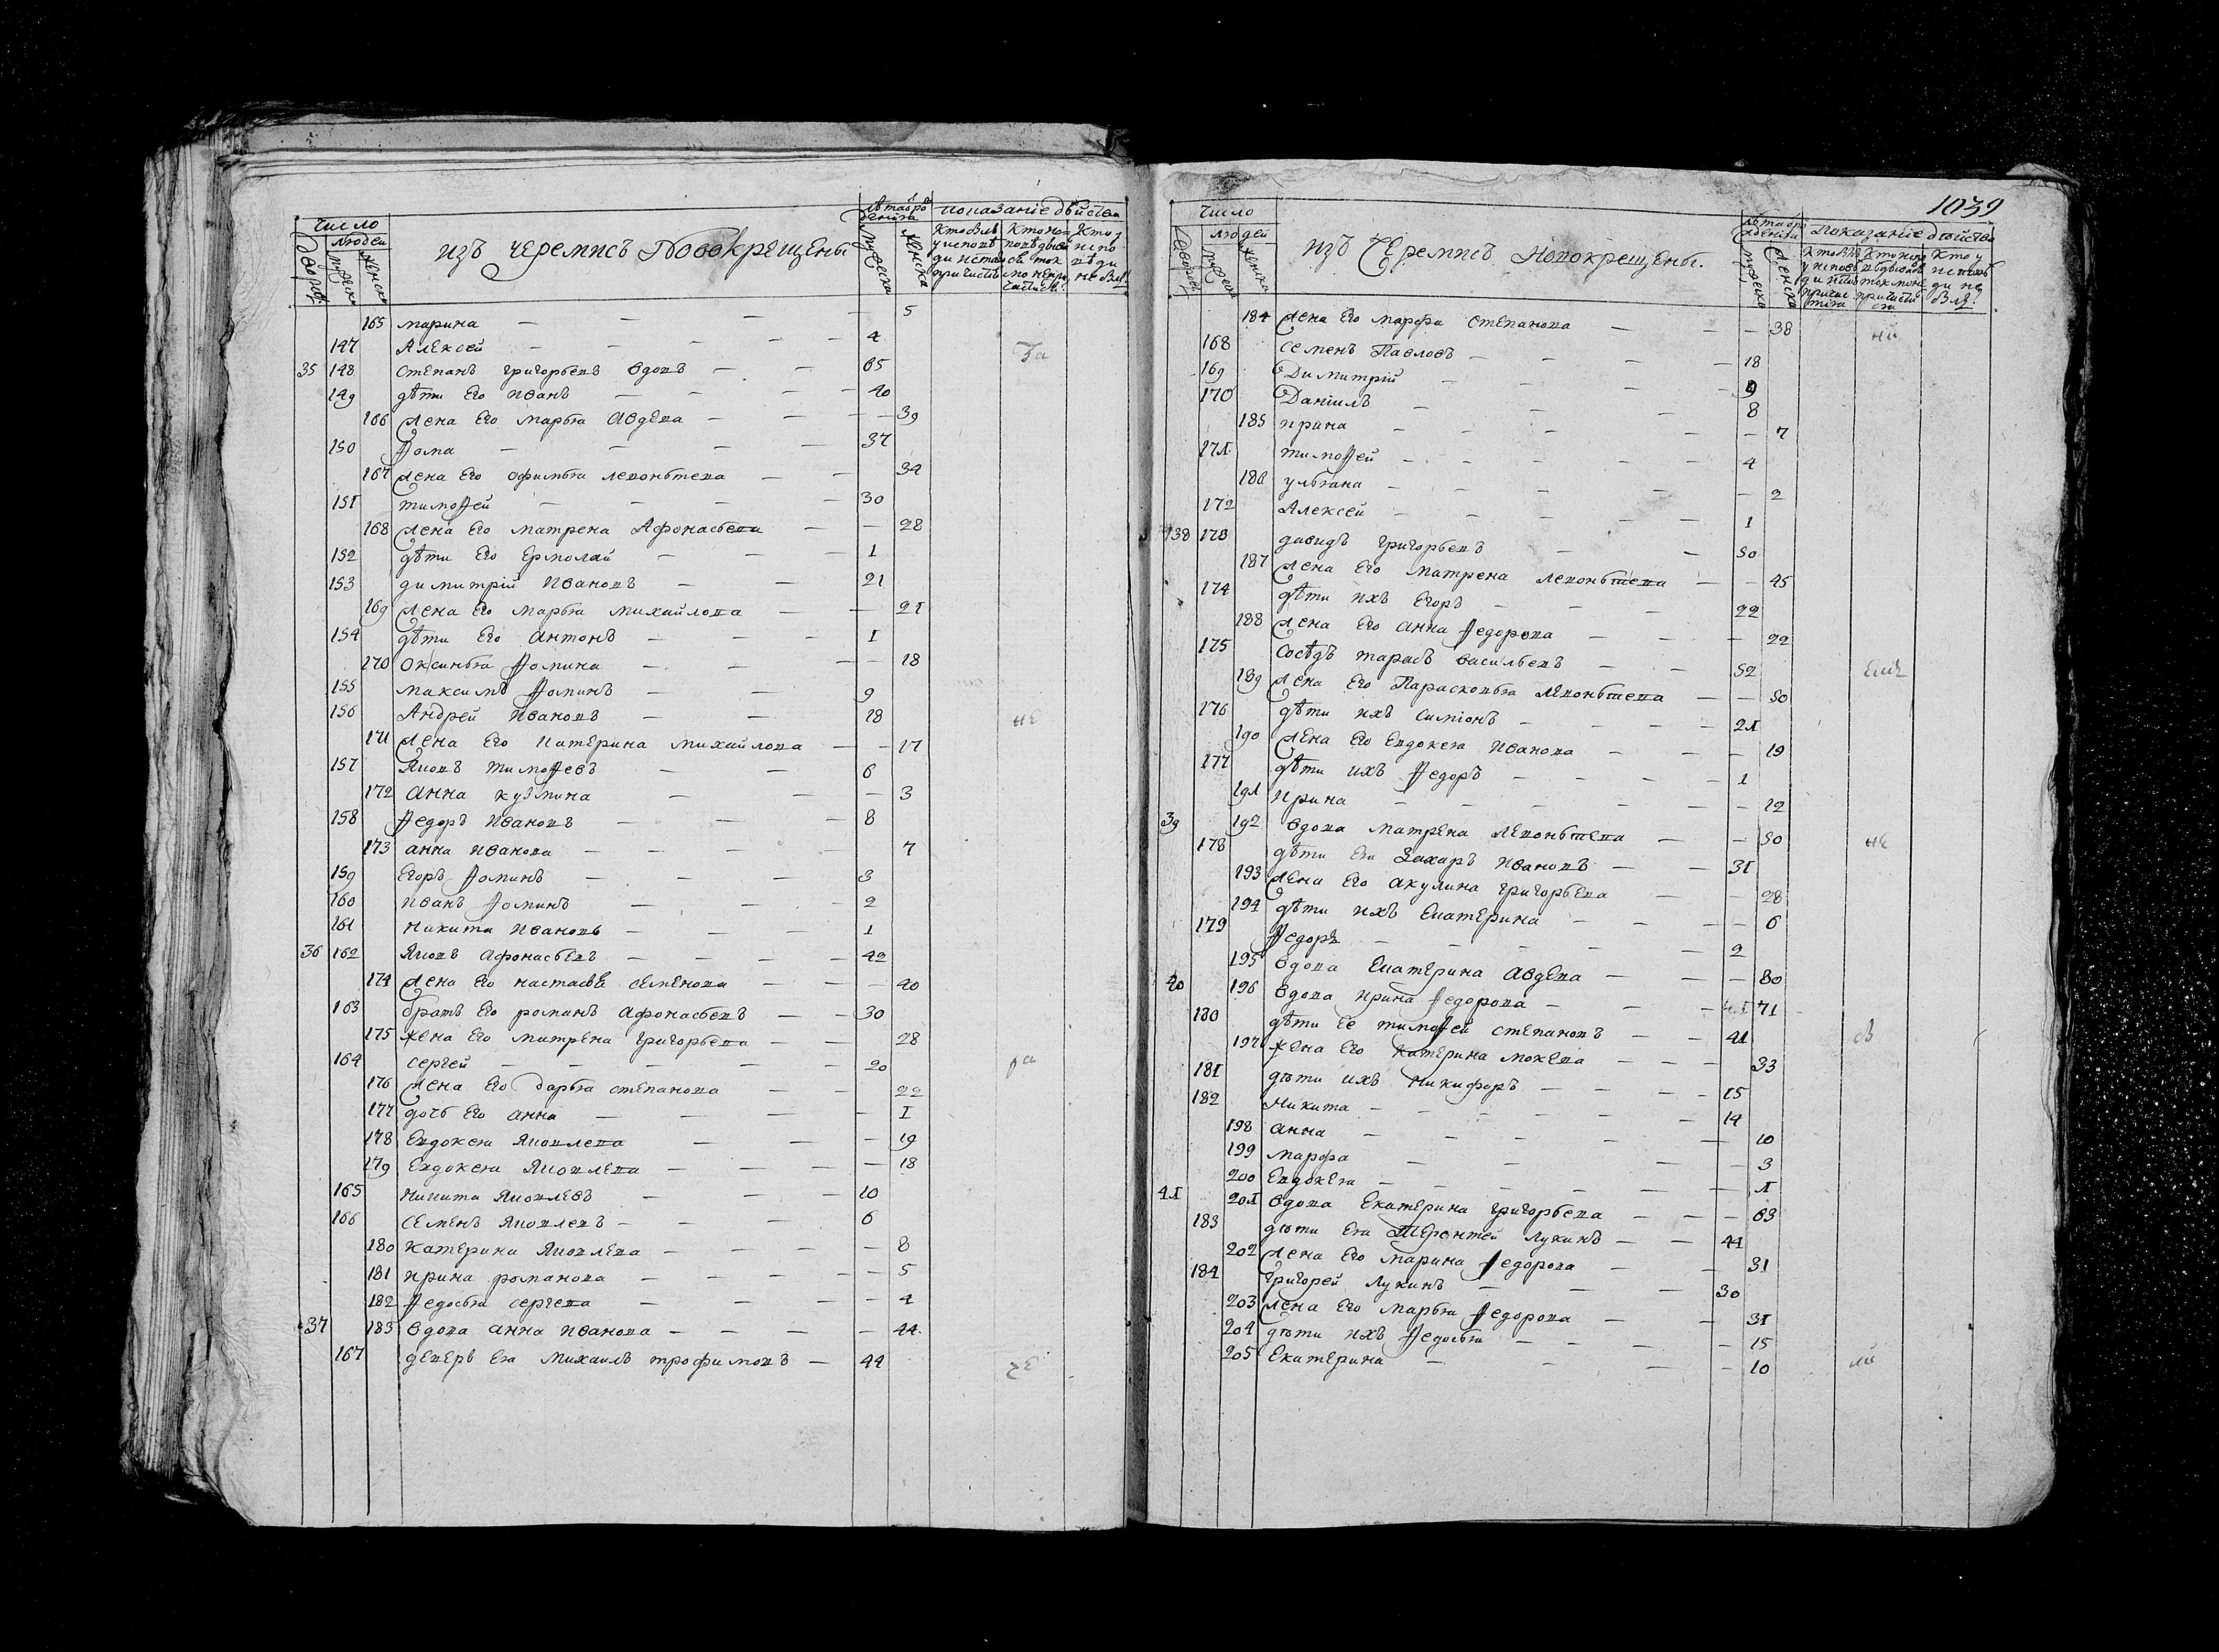 Число
Людей
изъ черемисъ Новокрещены
показаніе действа
165 марина — 5
147 Алексей — 4
35 148 степанъ григорьевъ вдовъ — 65
149 дѣти Его иванъ — 40
166 жена Его марья Авдева — 39
150 Ѳома — 37
167 жена Его офимья леоньтева — 34
151 тимоѲей — 30
168 жена Его матрена Афонасьева — 28
152 дѣти Его Ермолай — 1
153 димитрій ивановъ — 21
169 жена Его марья михайлова — 21
154 дѣти Его антонъ — 1
170 оксинья Ѳомина — 18
155 максимъ Ѳоминъ — 9
156 Андрей ивановъ — 18
171 жена Его катерина михайлова — 17
157 Яковъ тимоѲевъ — 6
172 анна кузмина — 3
158 Ѳедоръ ивановъ — 8
173 анна иванова — 7
159 Егоръ Ѳоминъ — 3
160 иванъ Ѳоминъ — 2
161 никита ивановъ — 1
36 162 Яковъ афонасьевъ — 42
174 жена Его настасья семенова — 40
163 братъ Его романъ афонасьевъ — 30
175 жена Его матрена григорьева — 28
164 сергей — 20
176 жена Его дарья степанова — 22
177 дочь Его анна — 1
178 Евдокея Яковлева — 19
179 Евдокея Яковлева — 18
165 никита Яковлевъ — 10
166 семенъ Яковлевъ — 6
180 катерина Яковлева — 8
181 ирина романова — 5
182 Ѳедосья сергева — 4
37 183 вдова анна иванова — 44
167 деверь Ея михаилъ трофимовъ — 44
1039
Число
людей
изъ Черемисъ новокрещены.
показаніе действа
184 жена Его марфа степанова — 38
168 семенъ Павловъ — 18
169 Димитрій — 9
170 Даніилъ — 8
185 ирина — 7
171 тимоѲей — 4
186 ульяна — 2
172 Алексей — 1
38 173 давидъ григорьевъ — 50
187 жена Его матрена леоньтева — 45
174 дѣти ихъ Егоръ — 22
188 жена Его анна Ѳедорова — 22
175 сосѣдъ тарасъ васильевъ — 52
189 жена Его Парасковья леоньтева — 50
176 дѣти ихъ симіонъ — 21
190 жена Его Евдокея иванова — 19
177 дѣти ихъ Ѳедоръ — 1
191 ирина — 12
39 192 вдова матрена леоньтева — 50
178 дѣти Ея Захаръ ивановъ — 31
193 жена Его акулина григорьева — 28
194 дѣти ихъ Екатерина — 6
179 Ѳедоръ — 2
195 вдова Екатерина авдева — 80
40 196 вдова ирина Ѳедорова — 71
180 дѣти Ее тимоѲей степановъ — 41
197 жена Его катерина мокева — 33
181 дѣти ихъ никифоръ — 15
182 Никита — 14
198 анна — 10
199 марфа — 3
200 Евдокея — 1
41 201 вдова Екатерина григорьева — 63
183 дѣти Ея Терентей лукинъ — 44
202 жена Его марина Ѳедорова — 31
184 григорей лукинъ — 30
203 жена Его марья Ѳедорова — 31
204 дѣти ихъ Ѳедосья — 15
205 Екатерина — 10